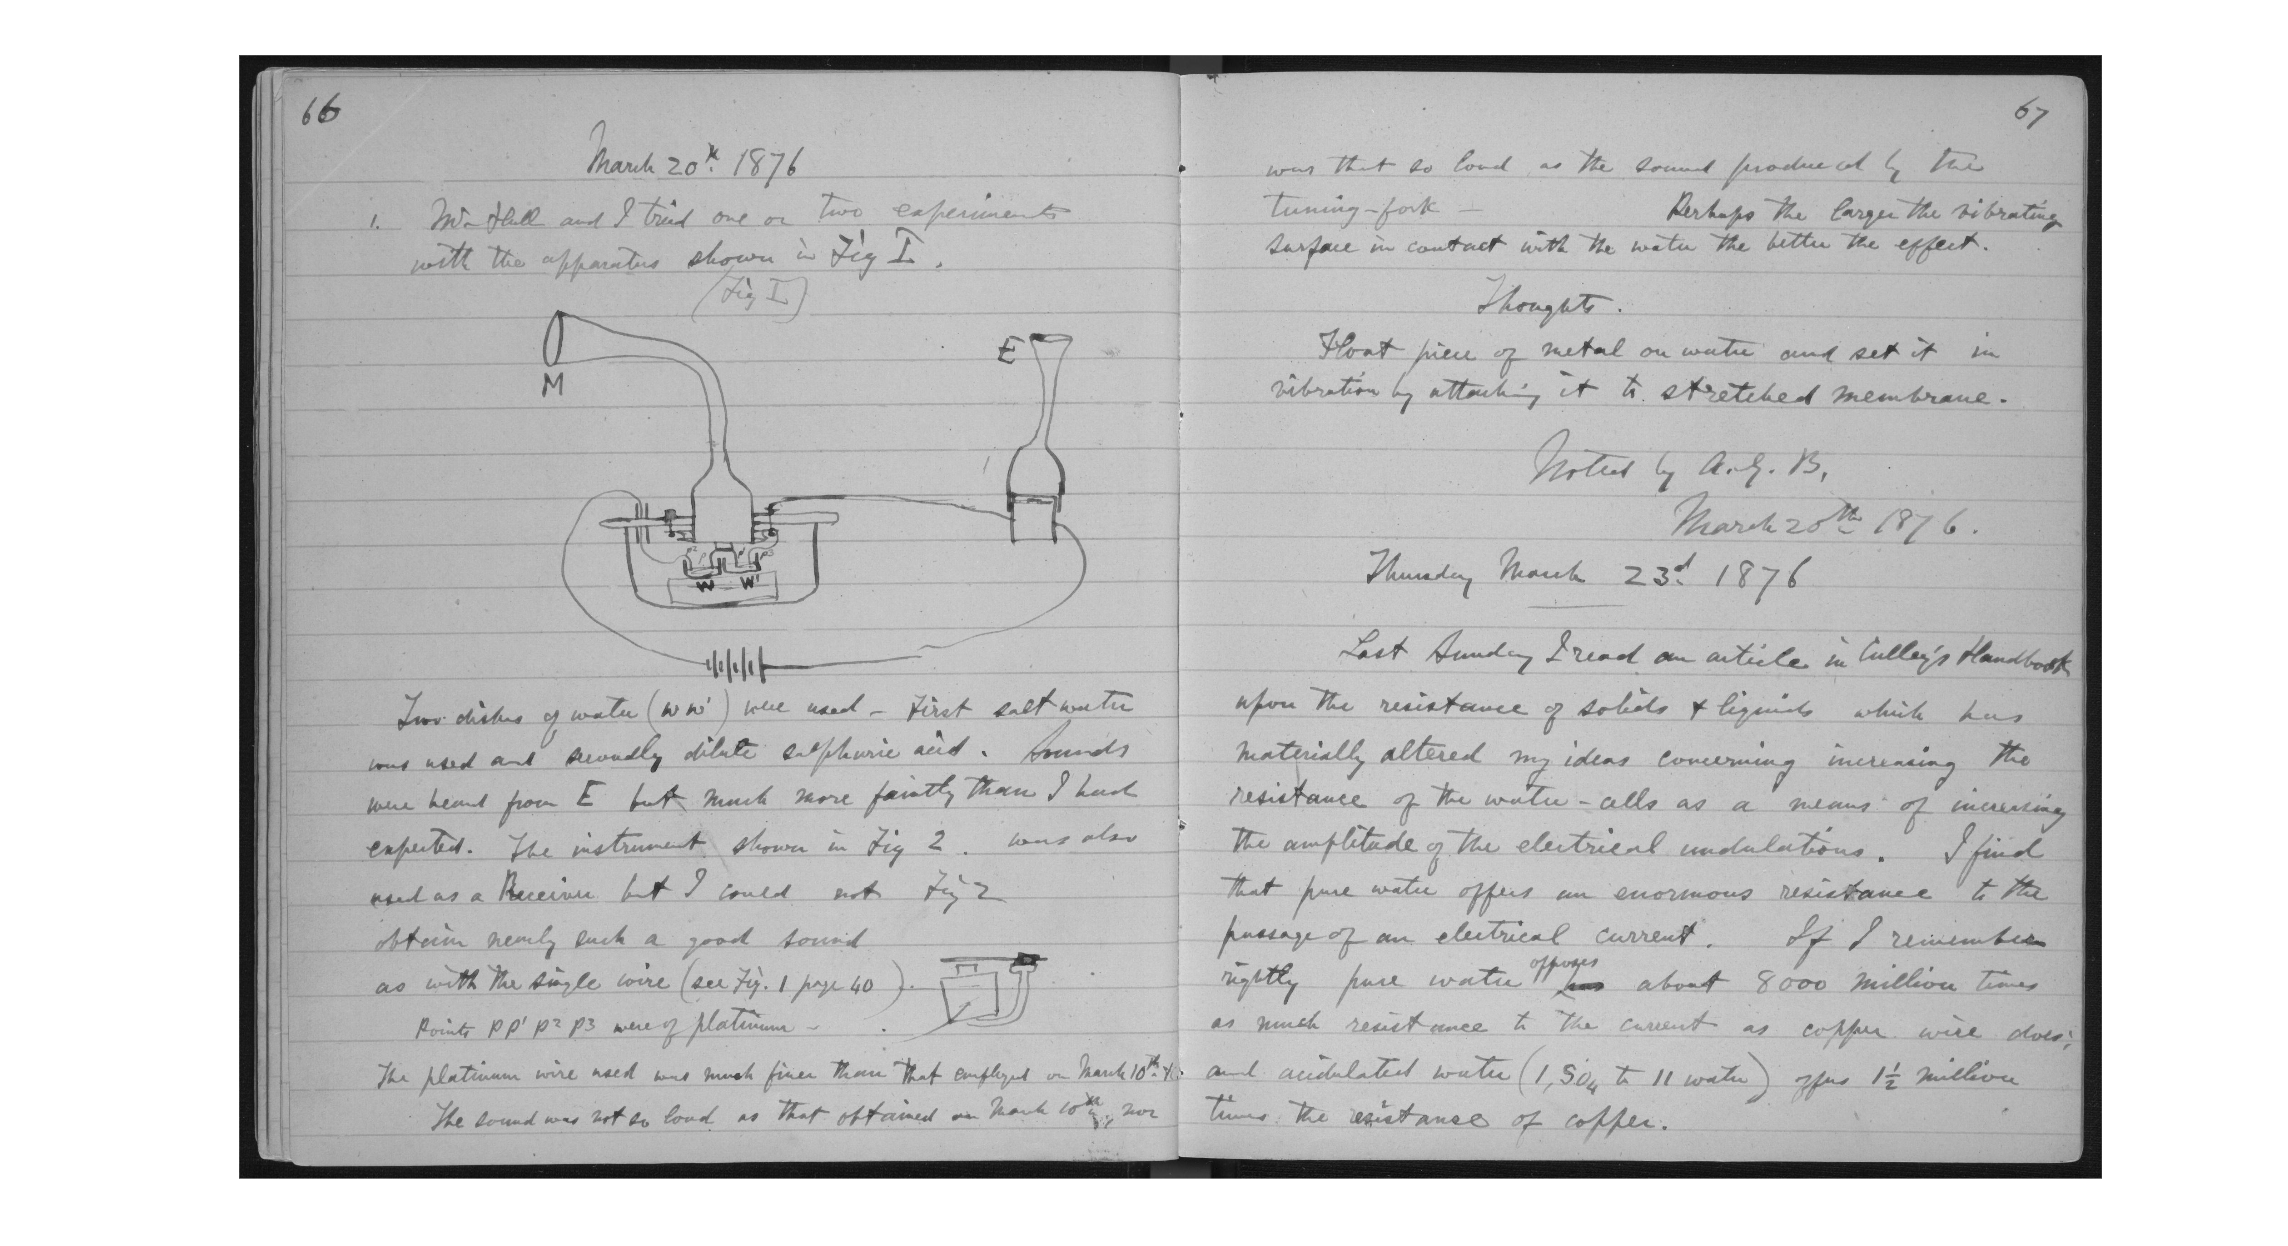 66
March 20th 1876
1. Mr Hall and I tried one or two experiments
with the apparatus shown in Fig I.
(Fig I)
M
E
W W'
Two dishes of water (W W') were used – First salt water
was used and secondly dilute sulphuric acid. Sounds
were heard from E but much more faintly than I had
expected. The instrument shown in Fig 2. was also
used as a Receiver but I could not
Fig 2
obtain nearly such a good sound
as with the single wire (see Fig. 1 page 40).
Points P P' P2 P3 were of platinum –
The platinum wire used was much finer than that employed on March 10th
The sound was not so loud as that obtained on March 10th, nor
67
was that so loud as the sound produced by the
tuning-fork – Perhaps the larger the vibrating
surface in contact with the water the better the effect.
Thoughts.
Float piece of metal on water and set it in
vibration by attaching it to stretched membrane.
Noted by A. G. B.
March 20th 1876.
Thursday March 23d 1876
Last Sunday I read an article in Culley's Handbook
upon the resistance of solids & liquids which has
materially altered my ideas concerning increasing the
resistance of the water-cells as a means of increasing
the amplitude of the electrical undulations. I find
that pure water offers an enormous resistance to the
passage of an electrical current. If I remember
rightly pure water opposes about 8000 million times
as much resistance to the current as copper wire does;
and acidulated water (1, SO4 to 11 water) offers 1½ million
times the resistance of copper.